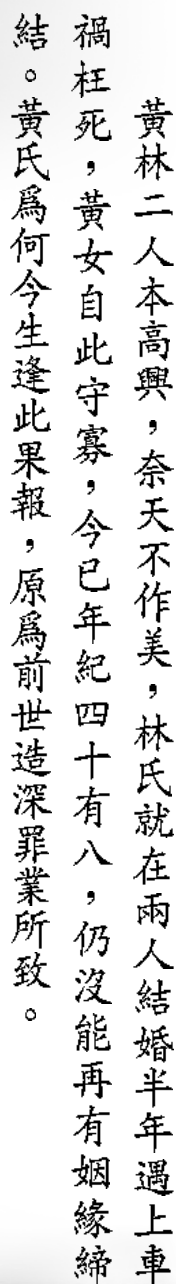 黃林二人本高興，奈天不作美，林氏就在兩人結婚半年遇上車
禍枉死，黃女自此守寡，今已年紀四十有八，仍沒能再有姻緣締
結。黃氏爲何今生逢此果報，原爲前世造深罪業所致。